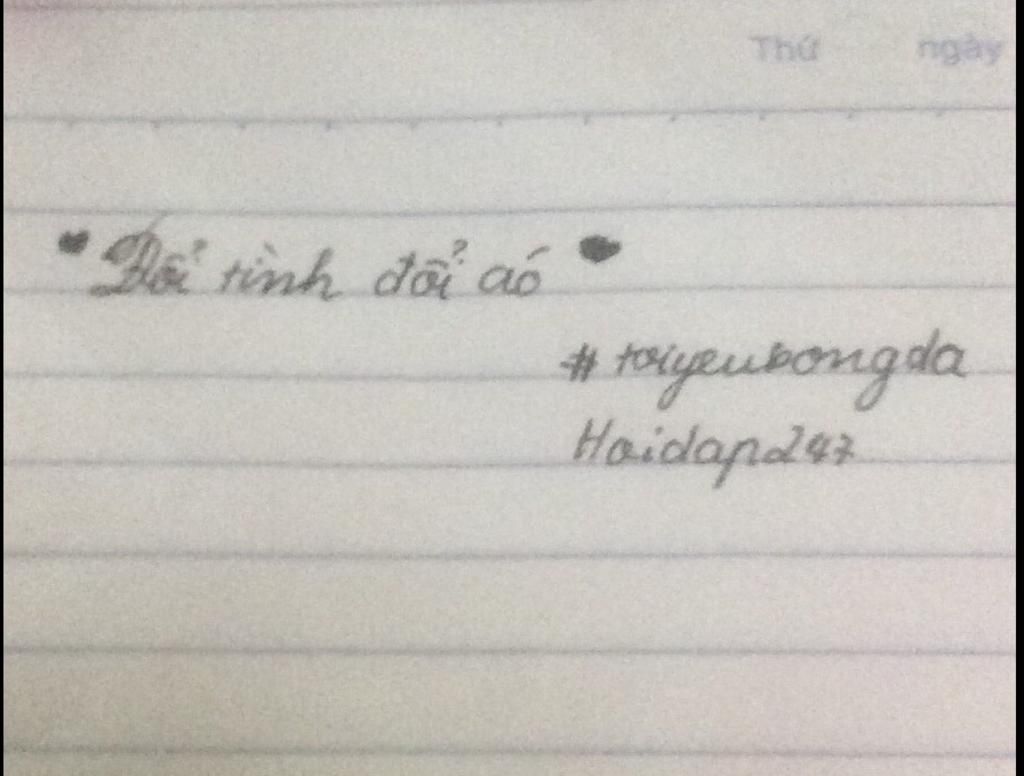 Thứ ngày
" Đổi tình đổi aó "
# toiyeubongda
Hoidap247